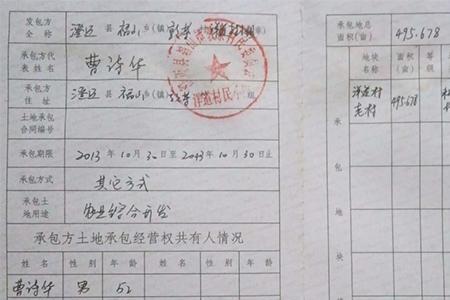 发包方全称 澄迈县福山乡(镇)敦茶村洋道村
承包方代表姓名 曹诗华
承包方住址 澄迈县福山乡(镇)敦茶
洋道村民小组
土地承包合同编号
承包期限 2013年10月30日至2043年10月30日止
承包方式 其它方式
承包土地用途 农业综合开发
承包方土地承包经营权共有人情况
姓名 性别 年龄 姓名 性别 年龄
曹诗华 男 52
承包地总面积(亩) 495.678
地块名称 面积(亩) 等级
洋道村 495.678
承包地块